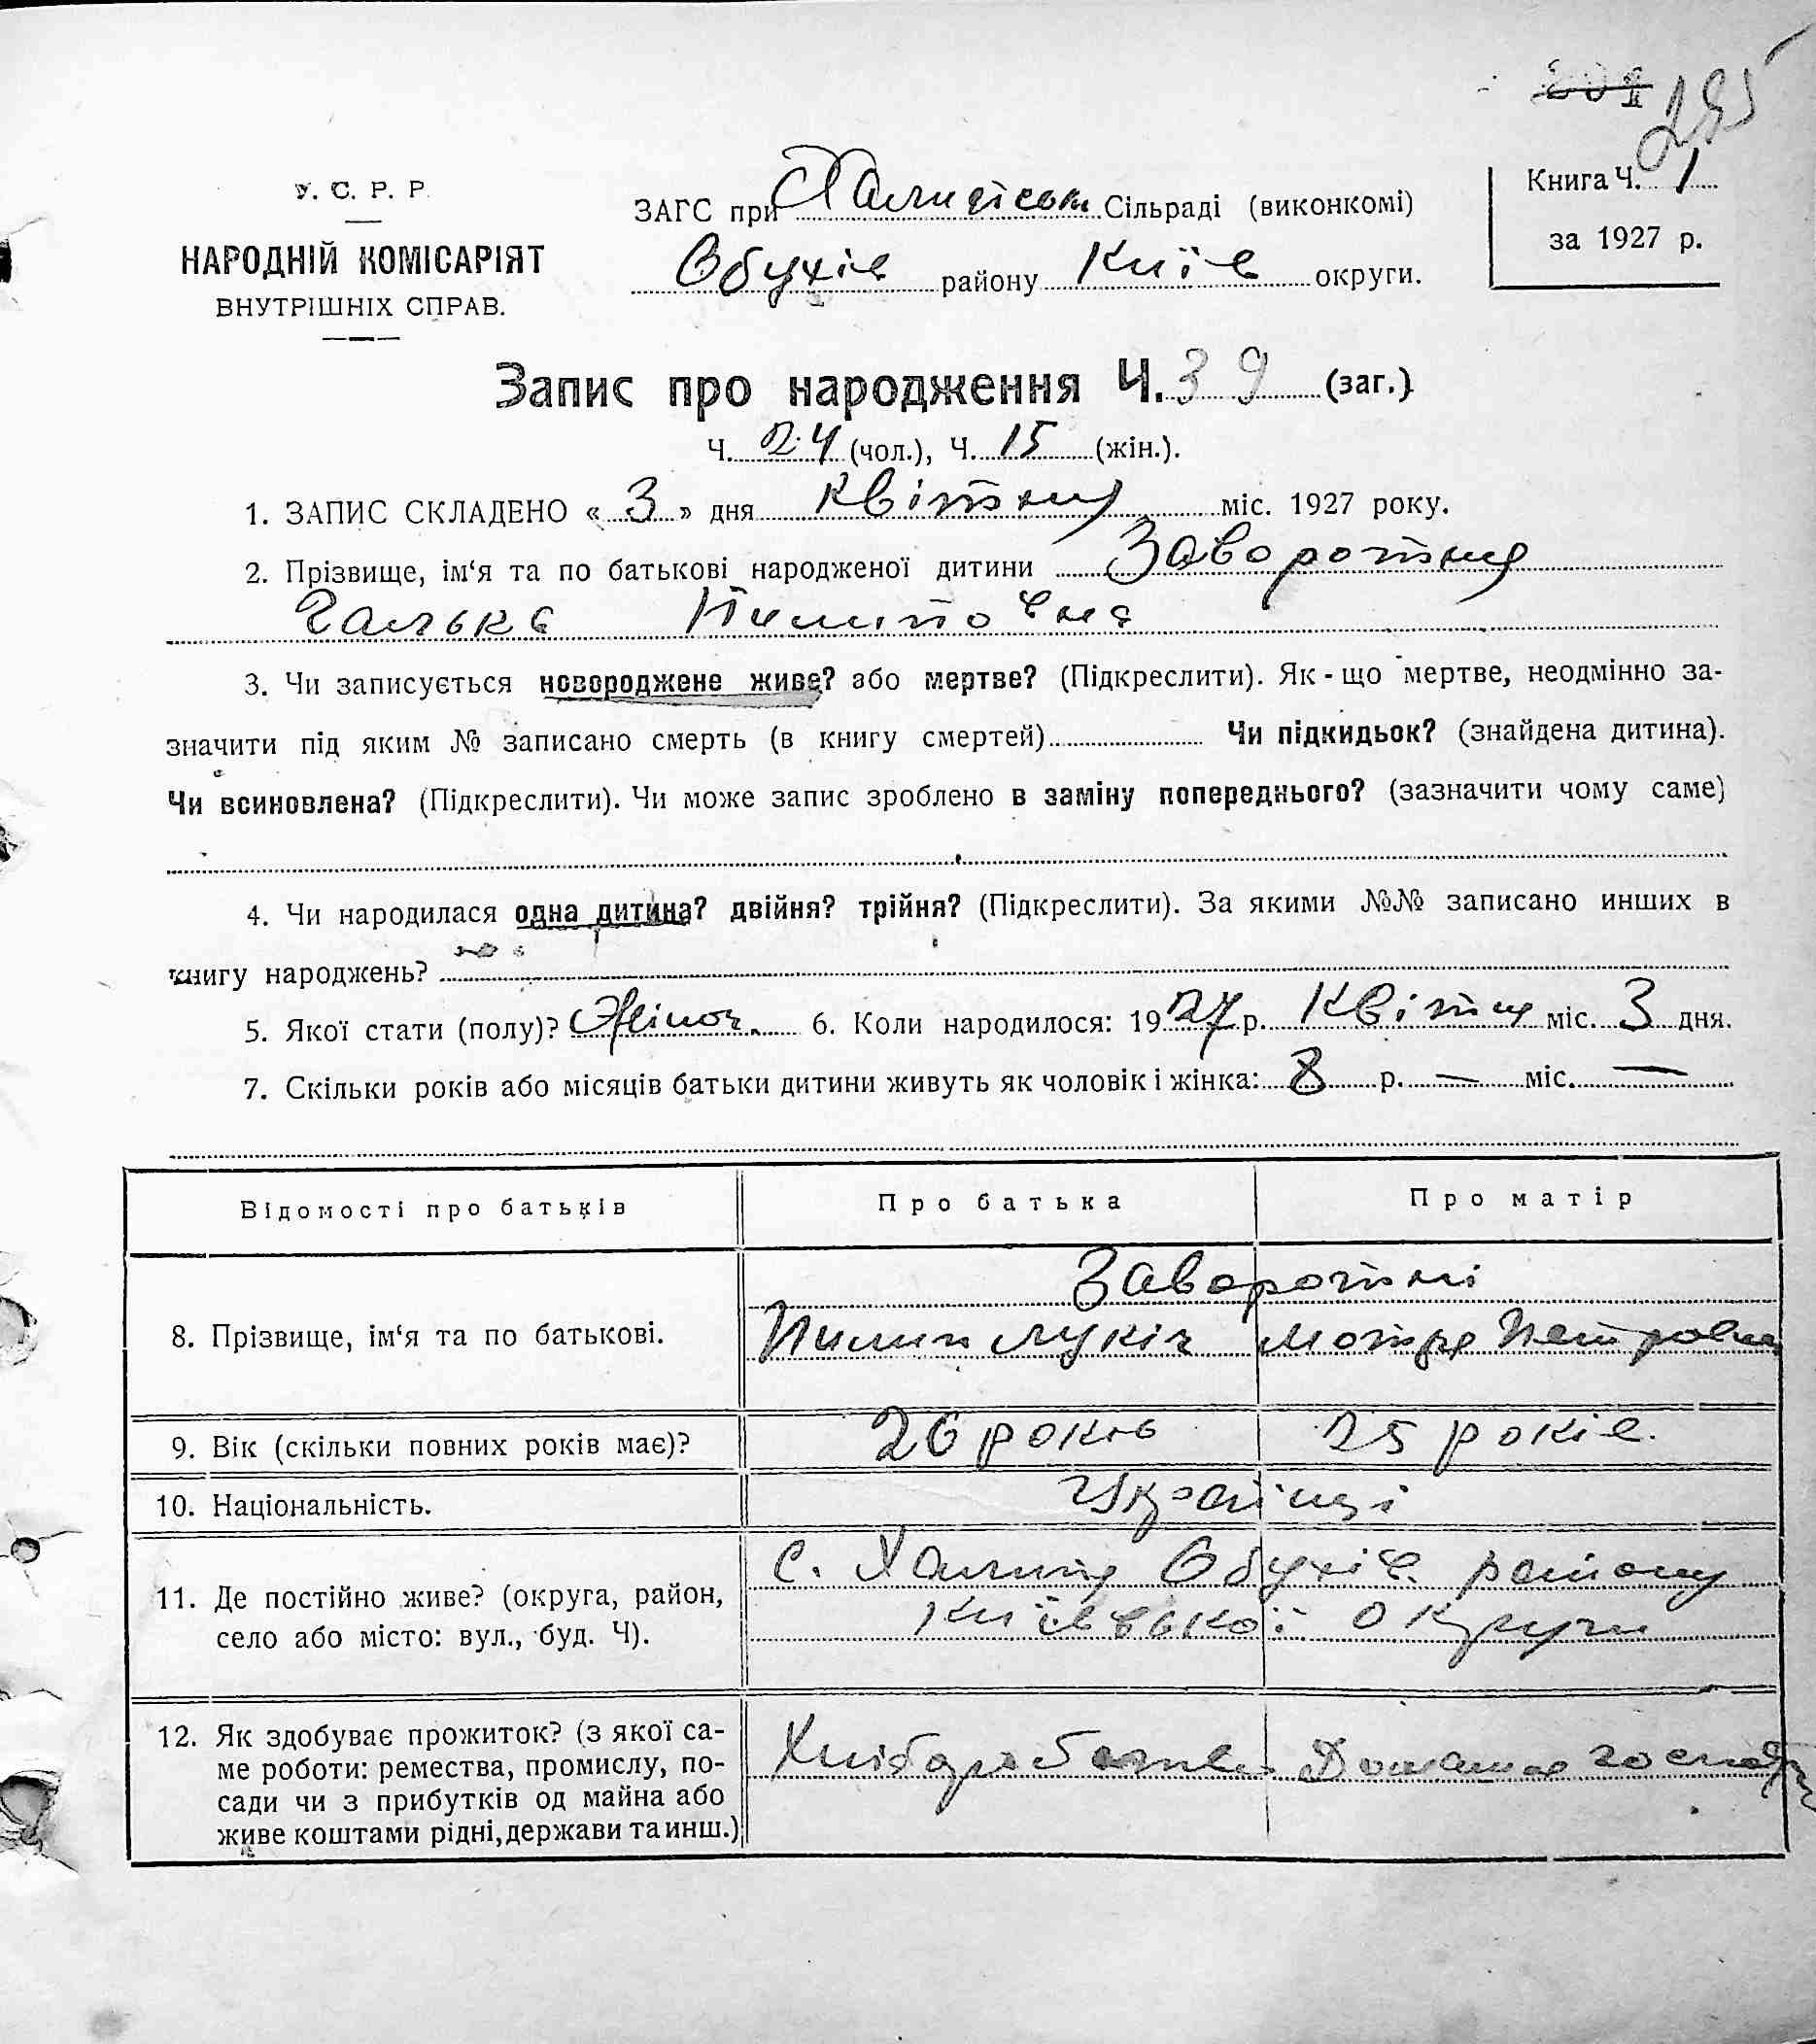 295
У. С. Р. Р.
НАРОДНІЙ КОМІСАРІЯТ
ВНУТРІШНІХ СПРАВ.
ЗАГС при Халипській Сільраді (виконкомі)
Обухів району Київ округи.
Книга Ч. 1
за 1927 р.
Запис про народження Ч. 39 (заг.)
Ч. 24 (чол.), Ч. 15 (жін.).
1. ЗАПИС СКЛАДЕНО « 3 » дня квітня міс. 1927 року.
2. Прізвище, ім‘я та по батькові народженої дитини Заворотня
Галька Пилиповна
3. Чи записується новороджене живе? або мертве? (Підкреслити). Як - що мертве, неодмінно за-
значити під яким № записано смерть (в книгу смертей) Чи підкидьок? (знайдена дитина).
Чи всиновлена? (Підкреслити). Чи може запис зроблено в заміну попереднього? (зазначити чому саме)
4. Чи народилася одна дитина? двійня? трійня? (Підкреслити). За якими №№ записано инших в
книгу народжень?
5. Якої стати (полу)? Жіноч. 6. Коли народилося: 1927 р. Квітня міс. 3 дня.
7. Скільки років або місяців батьки дитини живуть як чоловік і жінка: 8 р. — міс. —
Відомості про батьків Про батька Про матір
Заворотні
8. Прізвище, ім‘я та по батькові. Пилип Лукіч Мотря Петровна
9. Вік (скільки повних років має)? 26 років 25 років.
10. Національність. Українці
11. Де постійно живе? (округа, район, село або місто: вул., буд. Ч).
с. Халипя Обухів. району
Київської округи
12. Як здобуває прожиток? (з якої са-
ме роботи: ремества, промислу, по-
сади чи з прибутків од майна або
живе коштами рідні, держави та инш.)
Хліборобство Домашнє господ